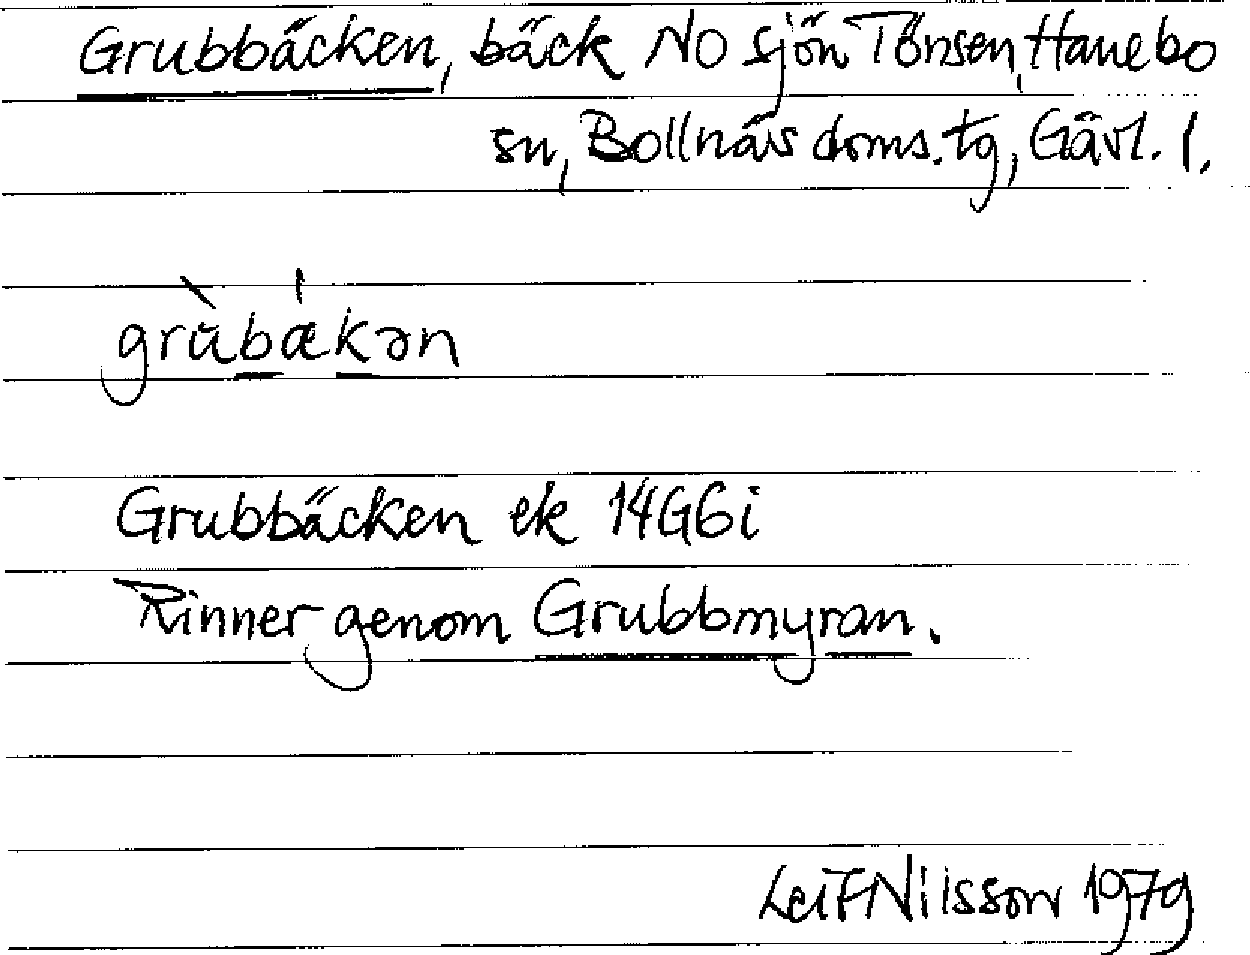 Grubbäcken, bäck NO sjön Tönsen, Hanebo
sn, Bollnäs doms. tg, Gävl. l.
grùbækən
Grubbäcken ek 14G6i
Rinner genom Grubbmyran.
Leif Nilsson 1979